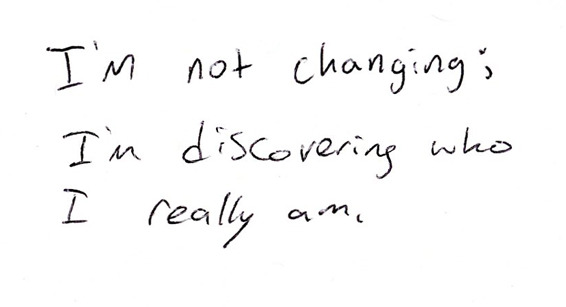 I'm not changing;
I'm discovering who
I really am.